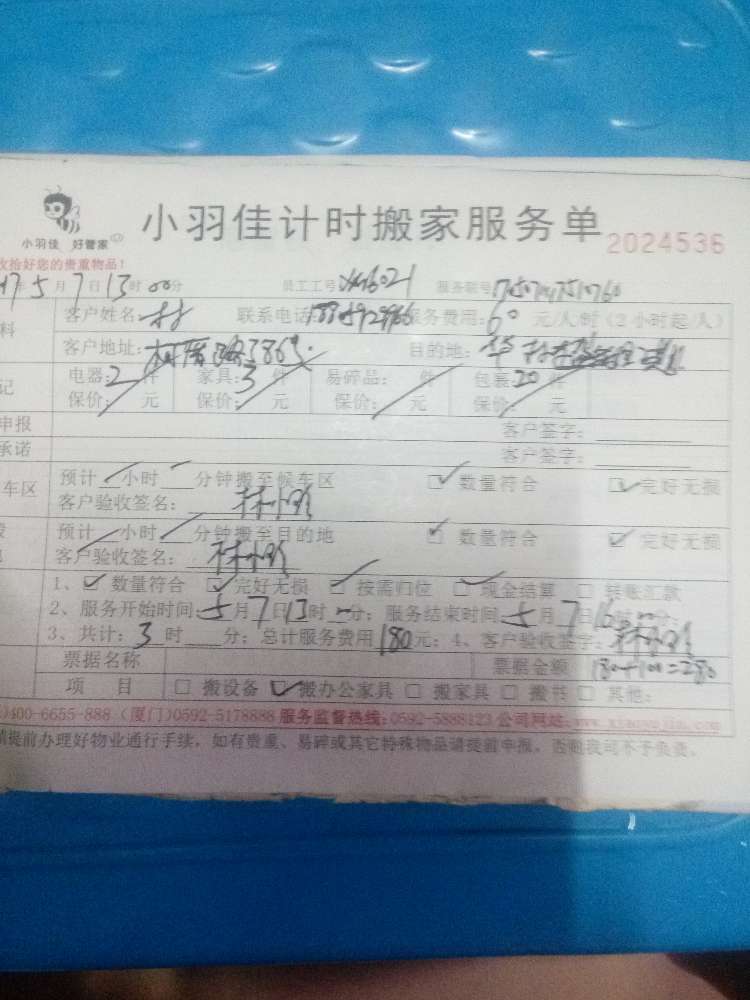 小羽佳 好管家
小羽佳计时搬家服务单 2024536
收拾好您的贵重物品！
17年5月7日13时00分 员工工号 服务联号
客户姓名：林 联系电话 服务费用：60元/人/时（2小时起/人）
客户地址： 目的地：
电器：2件 家具：3件 易碎品： 件 包装：20件
保价： 元 保价： 元 保价： 元 保价： 元
申报 客户签字：
承诺 客户签字：
车区 预计 小时 分钟搬至候车区 数量符合 完好无损
客户验收签名：
预计 小时 分钟搬至目的地 数量符合 完好无损
客户验收签名：
1、 数量符合 完好无损 按需归位 现金结算 转账汇款
2、服务开始时间：5月7日13时00分；服务结束时间：5月7日16时00分；
3、共计：3时 分；总计服务费用180元；4、客户验收签字：
票据名称 票据金额 180+100=280
项 目 搬设备 搬办公家具 搬家具 搬书 其他：
400-6655-888（厦门）0592-5178888 服务监督热线：0592-5888123 公司网站：
请提前办理好物业通行手续，如有贵重、易碎或其它特殊物品请提前申报，否则我司不予负责。